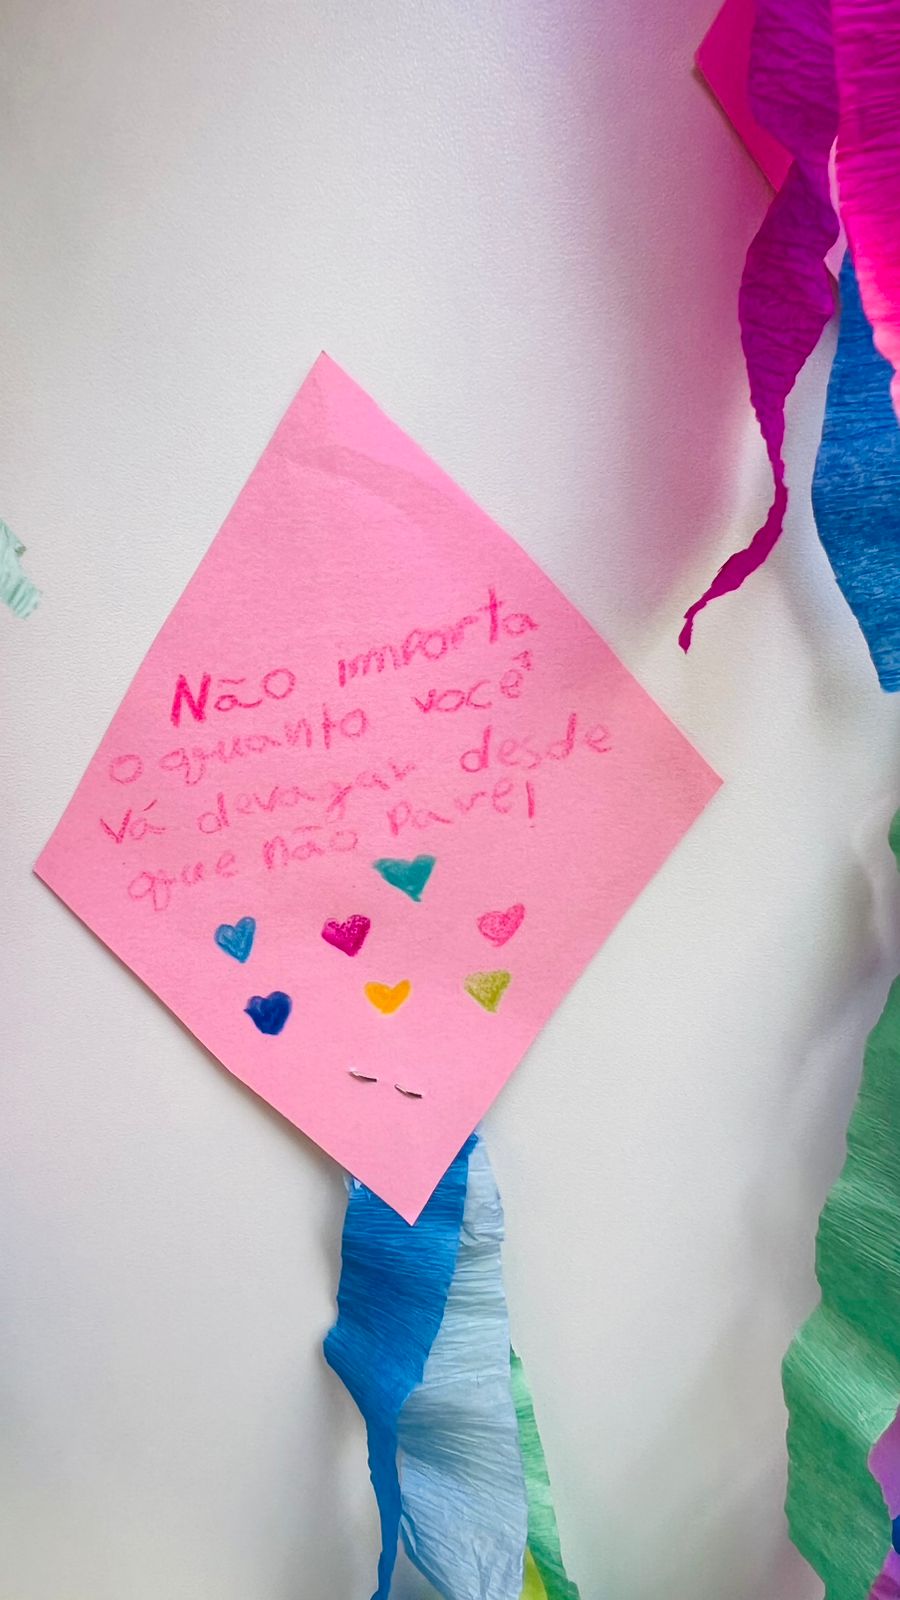 Não importa
o quanto você
vá devagar desde
que não pare!